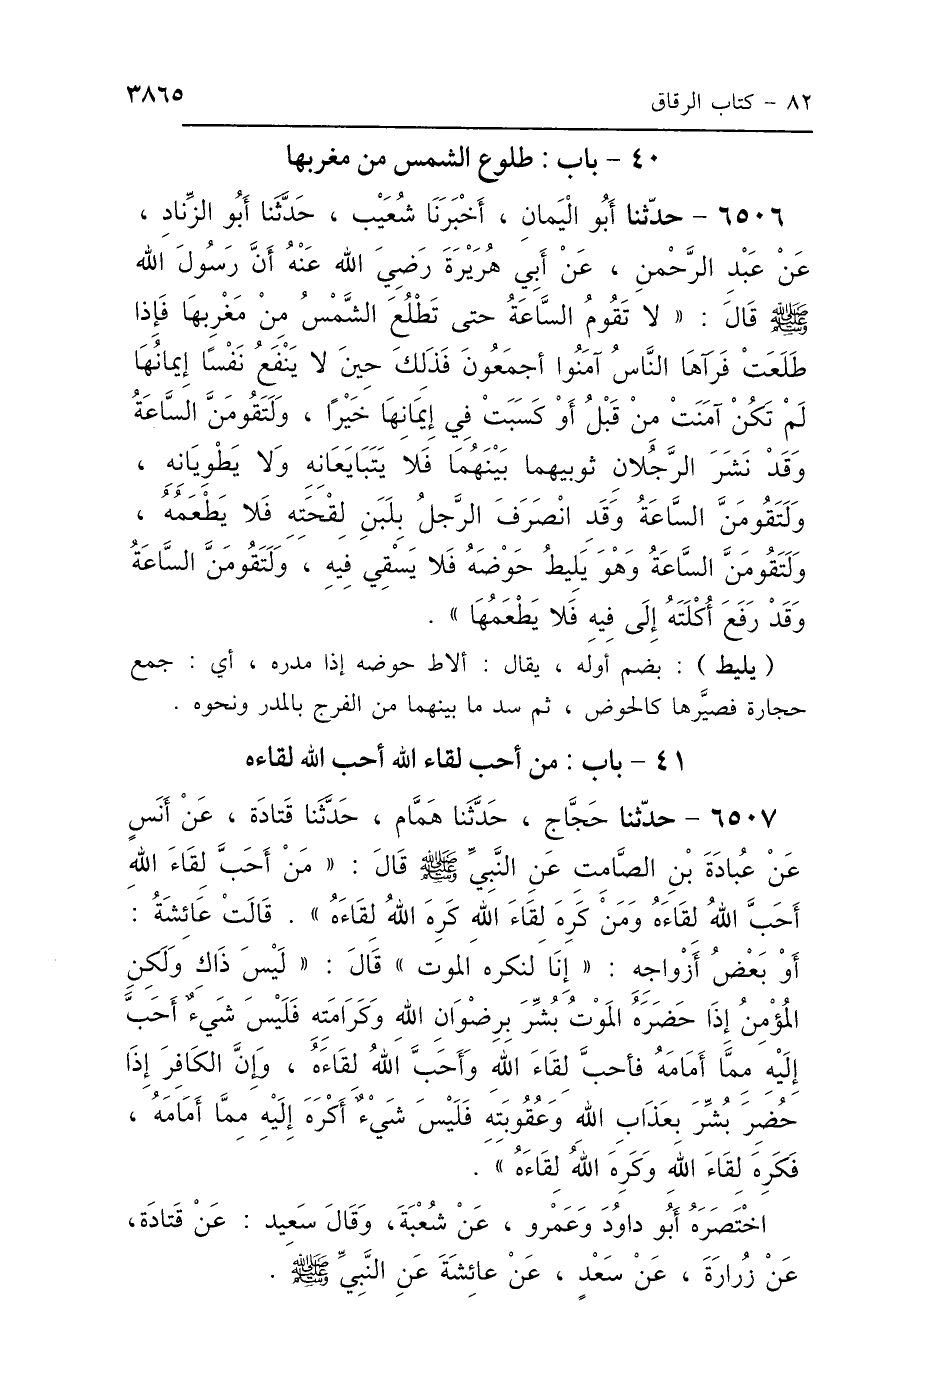 ٨٢ - كتاب الرقاق ٣٨٦٥
٤٠ - باب : طلوع الشمس من مغربها
٦٥٠٦ - حدّثنا أَبُو الْيَمان ، أَخْبَرَنَا شُعَيْب ، حَدَّثَنا أَبُو الزِّناد ،
عَنْ عَبْدِ الرَّحْمنِ ، عَنْ أَبِي هُرَيْرَةَ رَضِيَ الله عَنْهُ أَنَّ رَسُولَ الله
ﷺ قَالَ : « لا تَقُومُ السَّاعَةُ حتى تَطْلُعَ الشَّمْسُ مِنْ مَغْرِبِهَا فَإِذا
طَلَعَتْ فَرَآهَا النَّاسُ آمَنُوا أجمَعُونَ فَذلكَ حينَ لا يَنْفَعُ نَفْسًا إيمانُهَا
لَمْ تَكُنْ آمَنَتْ مِنْ قَبْلُ أَوْ كَسَبَتْ فِي إِيمَانِهَا خَيْرًا ، وَلَتَقُومَنَّ السَّاعَةُ
وَقَدْ نَشَرَ الرَّجُلانِ ثوبيهما بَيْنَهُمَا فَلا يَتَبَايَعَانِهِ وَلا يَطْوِيَانِهِ ،
وَلَتَقُومَنَّ السَّاعَةُ وَقَد انْصَرَفَ الرَّجلُ بِلَبَنِ لِقْحَتِهِ فَلا يَطْعَمُهُ ،
وَلَتَقُومَنَّ السَّاعَةُ وَهْوَ يَلِيطُ حَوْضَهُ فَلا يَسْقِي فِيهِ ، وَلَتَقُومَنَّ السَّاعَةُ
وَقَدْ رَفَعَ أُكْلَتَهُ إِلَى فِيهِ فَلا يَطْعَمُهَا » .
( يليط ) : بضم أوله ، يقال : ألاط حوضه إذا مدره ، أي : جمع
حجارة فصيَّرها كالحوض ، ثم سد ما بينهما من الفرج بالمدر ونحوه .
٤١ - باب : من أحب لقاء الله أحب الله لقاءه
٦٥٠٧ - حدّثنا حَجَّاج ، حَدَّثَنا هَمَّام ، حَدَّثَنا قَتادَة ، عَنْ أَنَسٍ
عَنْ عُبادَةَ بْنِ الصَّامت عَنِ النَّبِيِّ ﷺ قَالَ : « مَنْ أَحَبَّ لِقَاءَ الله
أَحَبَّ اللهُ لِقَاءَهُ وَمَنْ كَرِهَ لِقَاءَ الله كَرِهَ اللهُ لِقَاءَهُ » . قَالَتْ عَائشَةُ :
أَوْ بَعْضُ أَزْواجِهِ : « إِنَّا لنكره الموت » قَالَ : « لَيْسَ ذَاكِ وَلَكِنِ
المُؤْمِنُ إِذَا حَضَرَهُ المَوْتُ بُشِّرَ بِرِضْوَانِ الله وَكَرَامَتِهِ فَلَيْسَ شَيءٌ أَحَبَّ
إِلَيْهِ ممَّا أَمَامَهُ فأحبَّ لِقَاءَ الله وأَحَبَّ اللهُ لِقَاءَهُ ، وَإِنَّ الكَافِرَ إِذَا
حُضِرَ بُشِّرَ بِعَذَابِ الله وَعُقُوبَتِهِ فَلَيْسَ شَيْءٌ أَكْرَهَ إِلَيْهِ ممَّا أَمَامَهُ ،
فَكَرِهَ لِقَاءَ الله وَكَرِهَ اللهُ لِقَاءَهُ » .
اخْتَصَرَهُ أَبُو داوُدَ وَعَمْرو ، عَنْ شُعْبَةَ، وَقَالَ سَعِيد : عَنْ قَتادَةَ،
عَنْ زُرارَةَ ، عَنْ سَعْدٍ ، عَنْ عائشَةَ عَنِ النَّبِيِّ ﷺ .